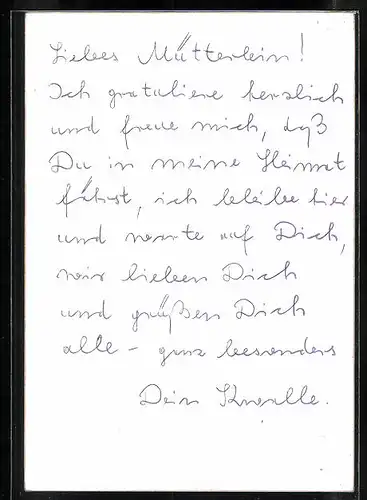 Liebes Mütterlein!
Ich gratuliere herzlich
und freue mich, daß
Du in meine Heimat
fährst, ich bleibe hier
und warte auf Dich,
wir lieben Dich
und grüßen Dich
alle – ganz besonders
Dein Knolle.